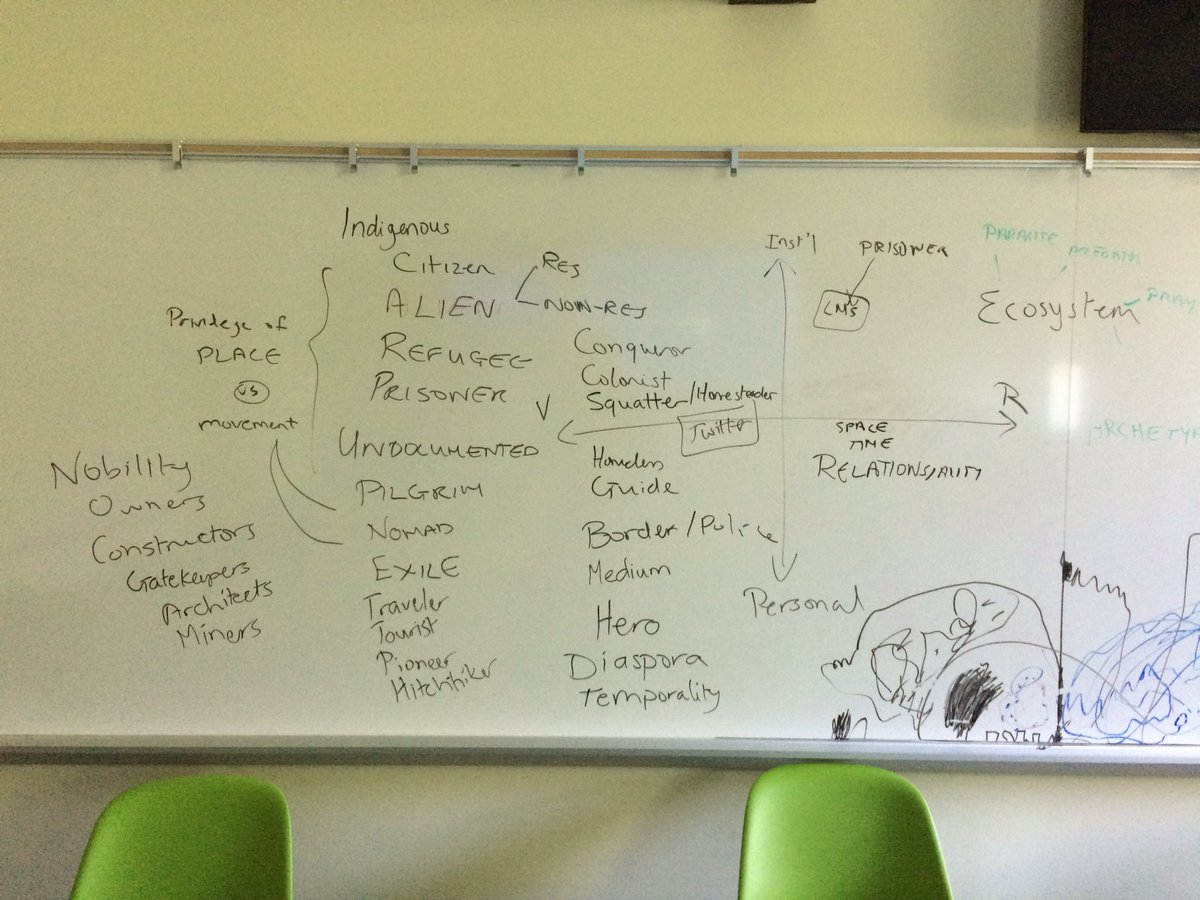 Nobility
Owners
Constructors
Gatekeepers
Architects
Miners
Privilege of
PLACE
VS
movement
Indigenous
Citizen
ALIEN
RES
NON-RES
REFUGEE
PRISONER
UNDOCUMENTED
PILGRIM
NOMAD
EXILE
Traveler
Tourist
Pioneer
Hitchhiker
Conqueror
Colonist
Squatter/Homesteader
V
Guide
Border/Police
Medium
Hero
Diaspora
Temporality
Inst'l
PRISONER
LMS
Twitter
R
SPACE
TIME
RELATIONS/ALITY
Personal
PARASITE
Ecosystem